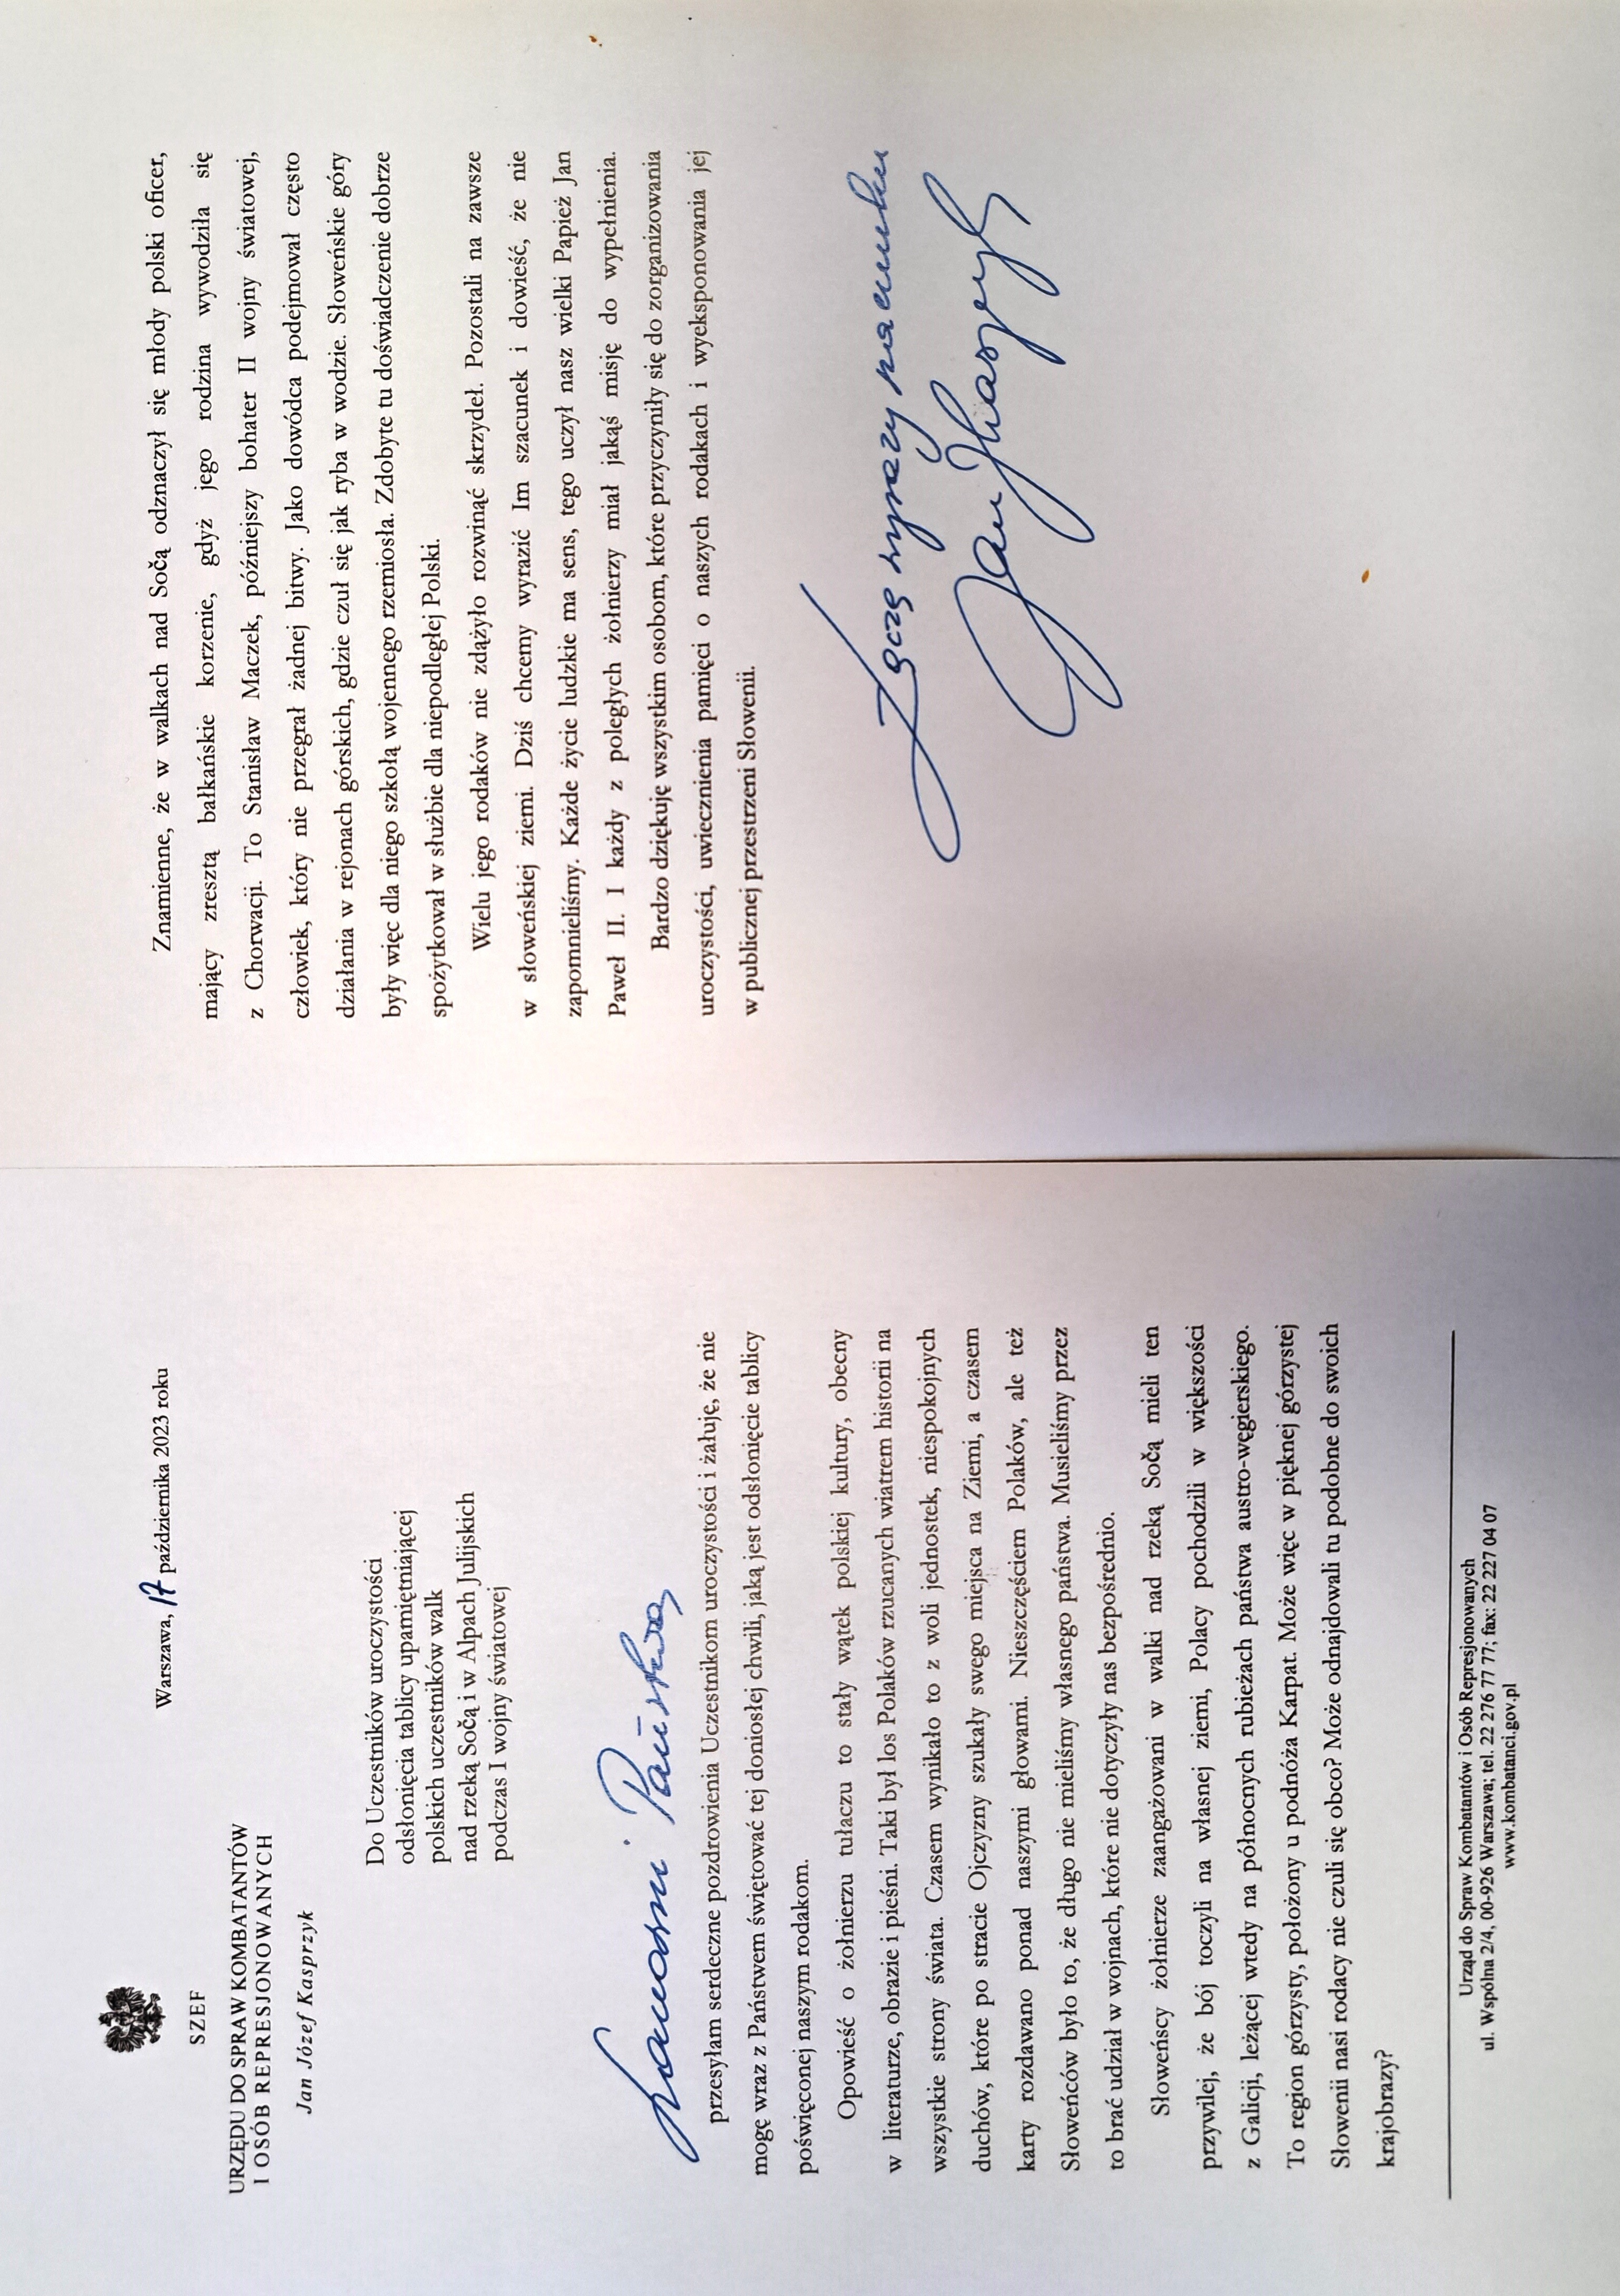 SZEF
URZĘDU DO SPRAW KOMBATANTÓW
I OSÓB REPRESJONOWANYCH
Jan Józef Kasprzyk
Warszawa, 17 października 2023 roku
Do Uczestników uroczystości
odsłonięcia tablicy upamiętniającej
polskich uczestników walk
nad rzeką Sočą i w Alpach Julijskich
podczas I wojny światowej
Szanowni Państwo,
przesyłam serdeczne pozdrowienia Uczestnikom uroczystości i żałuję, że nie
mogę wraz z Państwem świętować tej doniosłej chwili, jaką jest odsłonięcie tablicy
poświęconej naszym rodakom.
Opowieść o żołnierzu tułaczu to stały wątek polskiej kultury, obecny
w literaturze, obrazie i pieśni. Taki był los Polaków rzucanych wiatrem historii na
wszystkie strony świata. Czasem wynikało to z woli jednostek, niespokojnych
duchów, które po stracie Ojczyzny szukały swego miejsca na Ziemi, a czasem
karty rozdawano ponad naszymi głowami. Nieszczęściem Polaków, ale też
Słoweńców było to, że długo nie mieliśmy własnego państwa. Musieliśmy przez
to brać udział w wojnach, które nie dotyczyły nas bezpośrednio.
Słoweńscy żołnierze zaangażowani w walki nad rzeką Sočą mieli ten
przywilej, że bój toczyli na własnej ziemi, Polacy pochodzili w większości
z Galicji, leżącej wtedy na północnych rubieżach państwa austro-węgierskiego.
To region górzysty, położony u podnóża Karpat. Może więc w pięknej górzystej
Słowenii nasi rodacy nie czuli się obco? Może odnajdowali tu podobne do swoich
krajobrazy?
Urząd do Spraw Kombatantów i Osób Represjonowanych
ul. Wspólna 2/4, 00-926 Warszawa; tel. 22 276 77 77; fax: 22 227 04 07
www.kombatanci.gov.pl
Znamienne, że w walkach nad Sočą odznaczył się młody polski oficer,
mający zresztą bałkańskie korzenie, gdyż jego rodzina wywodziła się
z Chorwacji. To Stanisław Maczek, późniejszy bohater II wojny światowej,
człowiek, który nie przegrał żadnej bitwy. Jako dowódca podejmował często
działania w rejonach górskich, gdzie czuł się jak ryba w wodzie. Słoweńskie góry
były więc dla niego szkołą wojennego rzemiosła. Zdobyte tu doświadczenie dobrze
spożytkował w służbie dla niepodległej Polski.
Wielu jego rodaków nie zdążyło rozwinąć skrzydeł. Pozostali na zawsze
w słoweńskiej ziemi. Dziś chcemy wyrazić Im szacunek i dowieść, że nie
zapomnieliśmy. Każde życie ludzkie ma sens, tego uczył nasz wielki Papież Jan
Paweł II. I każdy z poległych żołnierzy miał jakąś misję do wypełnienia.
Bardzo dziękuję wszystkim osobom, które przyczyniły się do zorganizowania
uroczystości, uwiecznienia pamięci o naszych rodakach i wyeksponowania jej
w publicznej przestrzeni Słowenii.
Łączę wyrazy szacunku
Jan J Kasprzyk